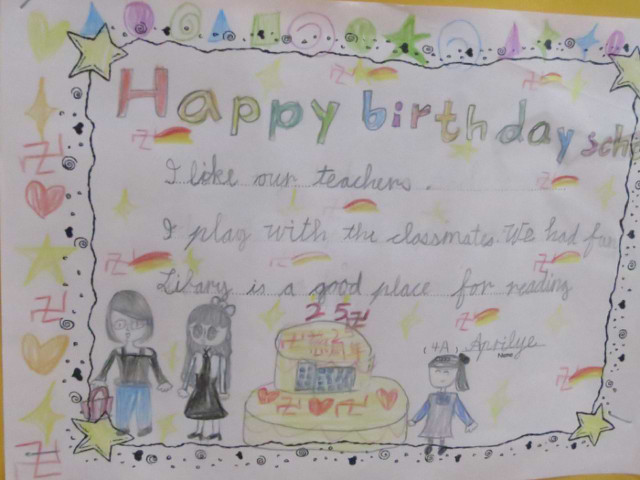 Happy birthday
I like our teachers.
I play with the classmates. We had
Libary is a good place for reading
25
(4A) Aprilye
Name